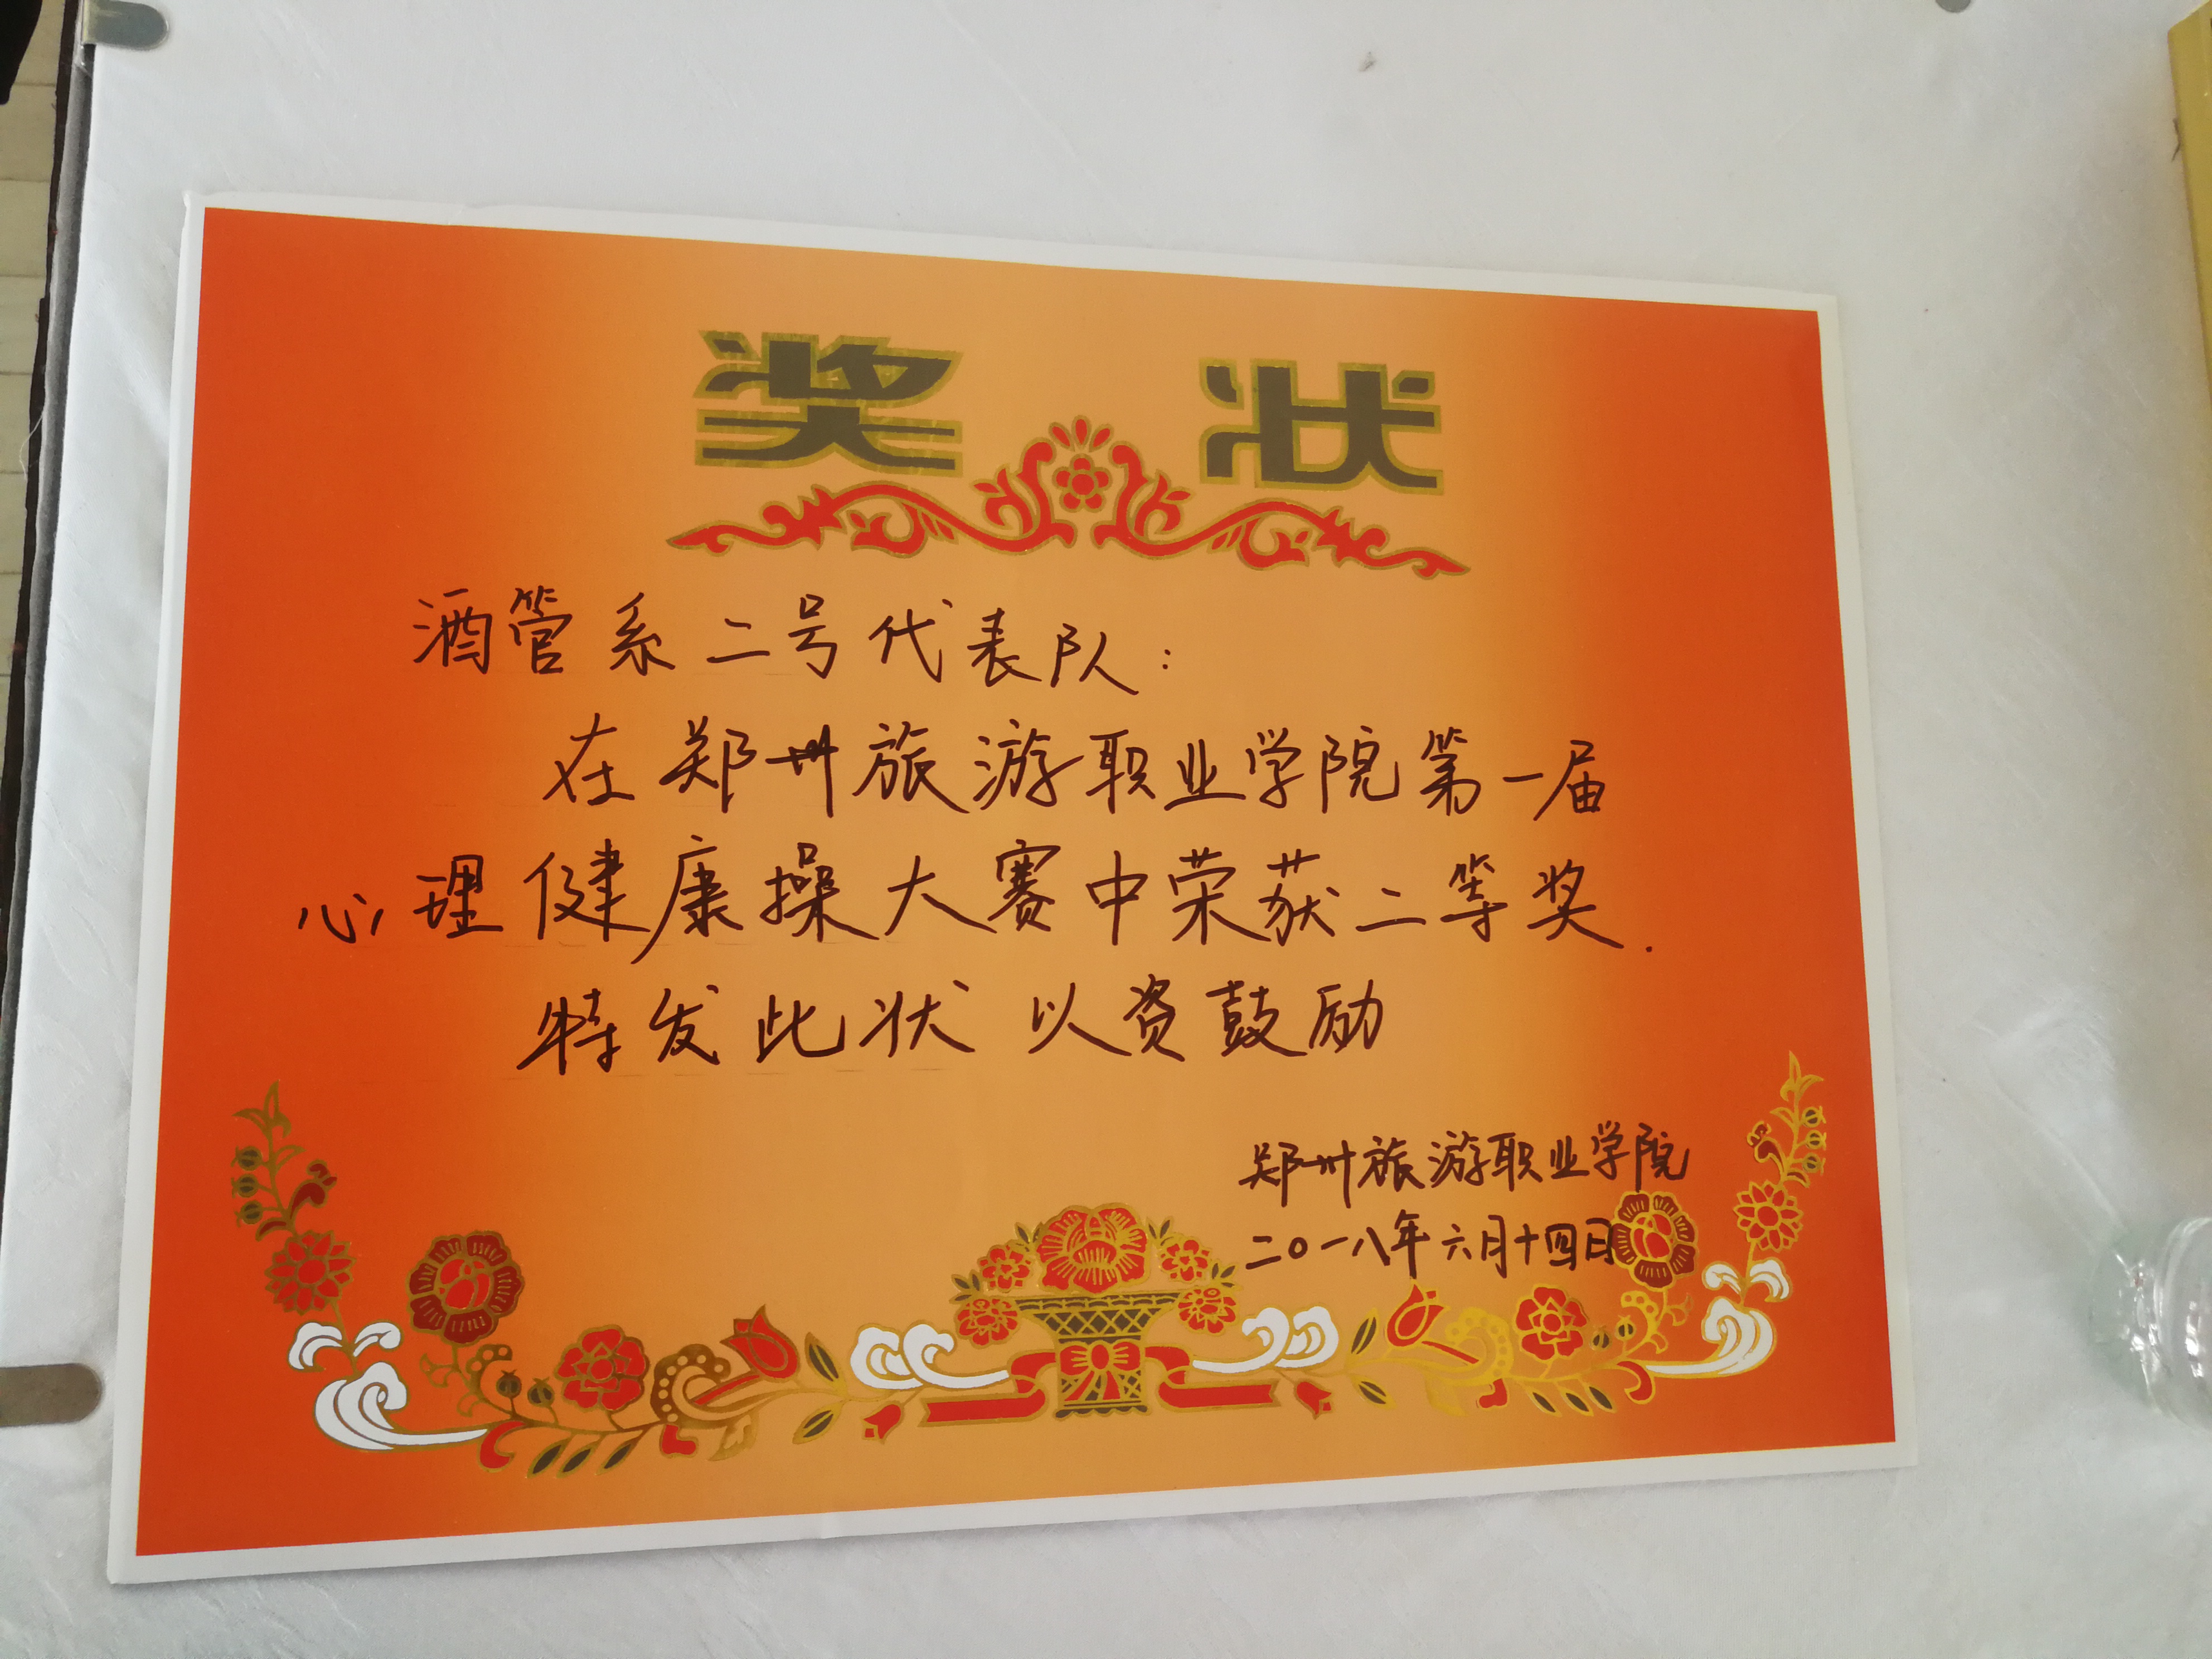 奖状
酒管系二号代表队：
在郑州旅游职业学院第一届
心理健康操大赛中荣获二等奖.
特发此状 以资鼓励
郑州旅游职业学院
二〇一八年六月十四日